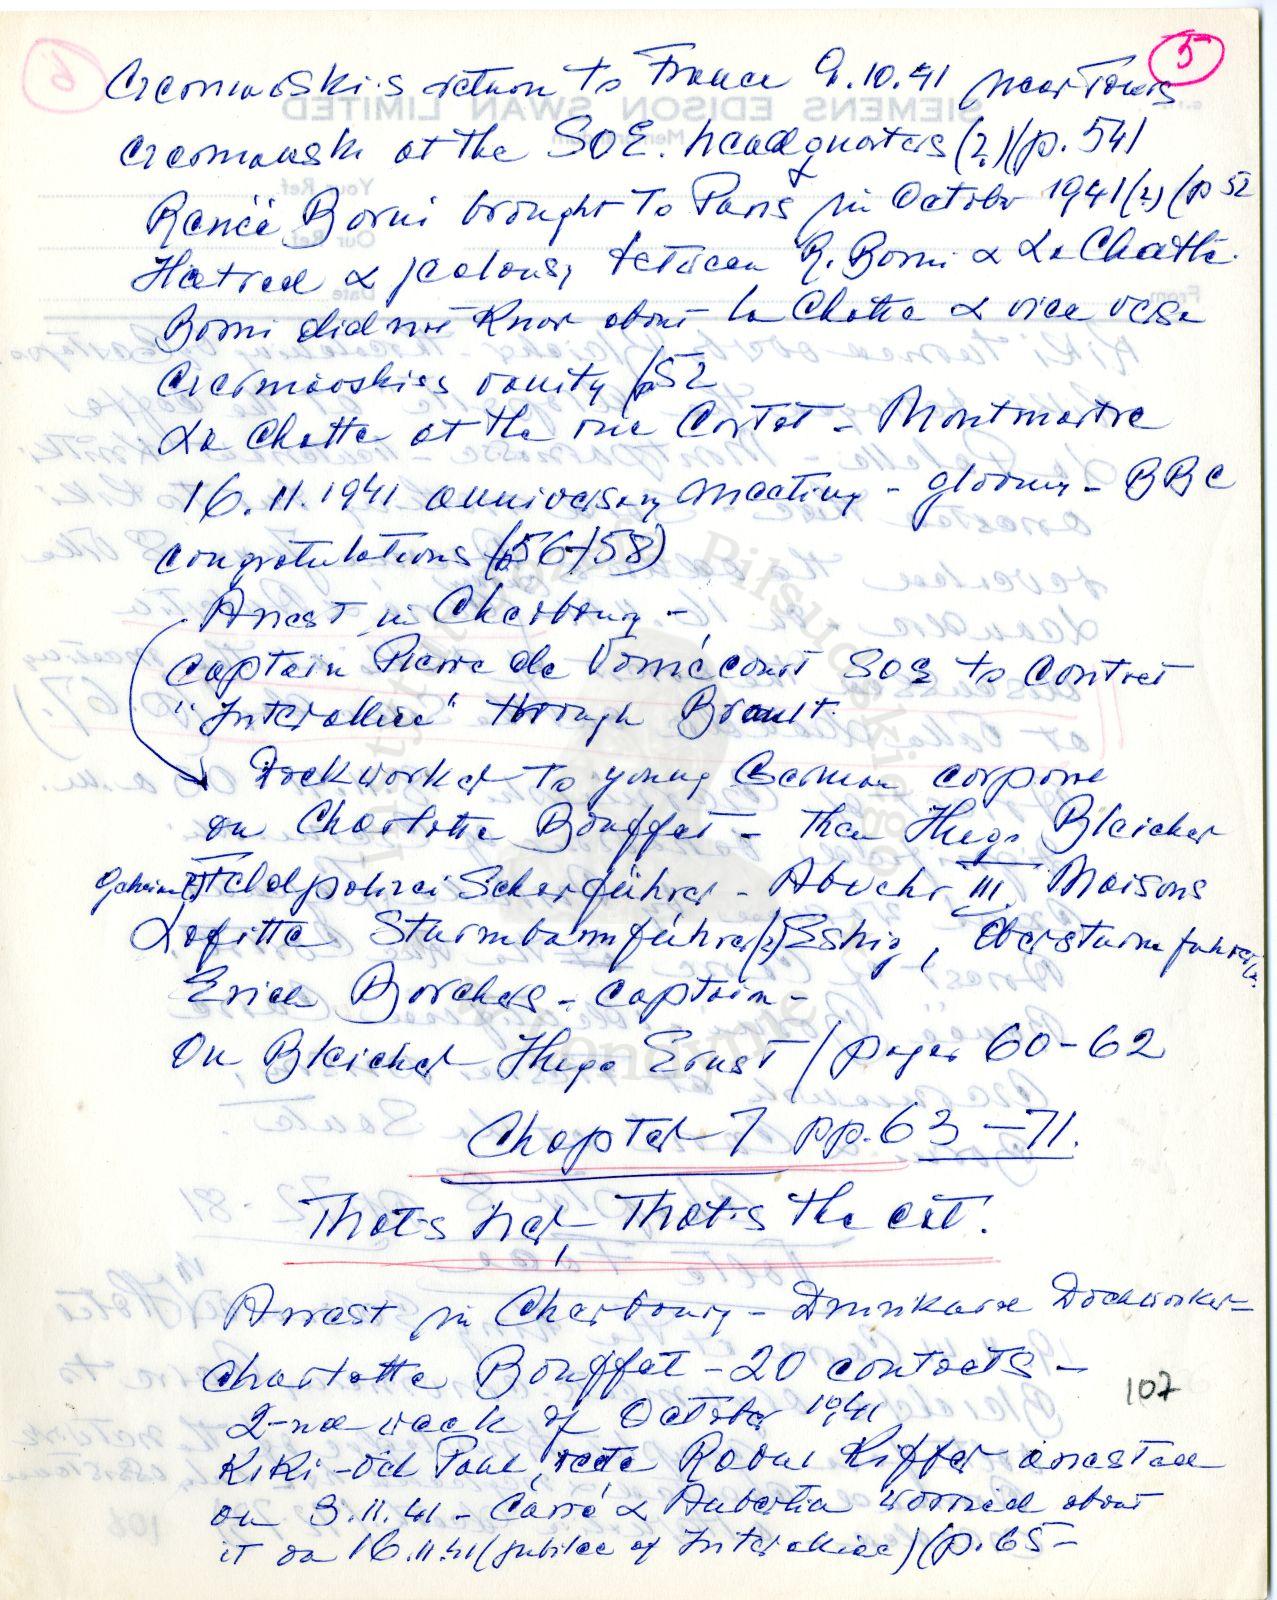 5
Czerniawski's return to France 9.10.41 near Tours
Czerniawski at the SOE. headquarters (?) (p. 54)
Renée Borni brought to Paris in October 1941 (?) (p 52
Hatred & jealousy between R. Borni & La Chatte.
Borni did not know about La Chatte & vice versa
Czerniawski's vanity p 52
La Chatte at the rue Cortot - Montmartre
16.11.1941 anniversary meeting - gloomy - BBC
congratulations (p 56-/58)
Arrest in Cherbourg -
Captain Pierre de Vomécourt SOE to contact
"Interalliée" through Brault.
Dockworker to young German corporal
on Charlotte Bouffet - then Hugo Bleicher
Geheime Feldpolizei Scharführer - Abwehr III Maisons
Lafitte Sturmbannführer (?) Eshig, Obersturmführer (?)
Erich Borchers - Captain -
On Bleicher Hugo Ernst / pages 60-62
Chapter 7 pp. 63-71.
That's her, That's the cat.
Arrest in Cherbourg - Drunkard Dockworker -
Charlotte Bouffet - 20 contacts -
2-nd week of October 1941
Kiki - Paul, recte Raoul Kiffer arrested
on 3.11.41 - Carré & Aubertin worried about
it on 16.11.41 (jubilee of Interallieé) (p. 65 -
107